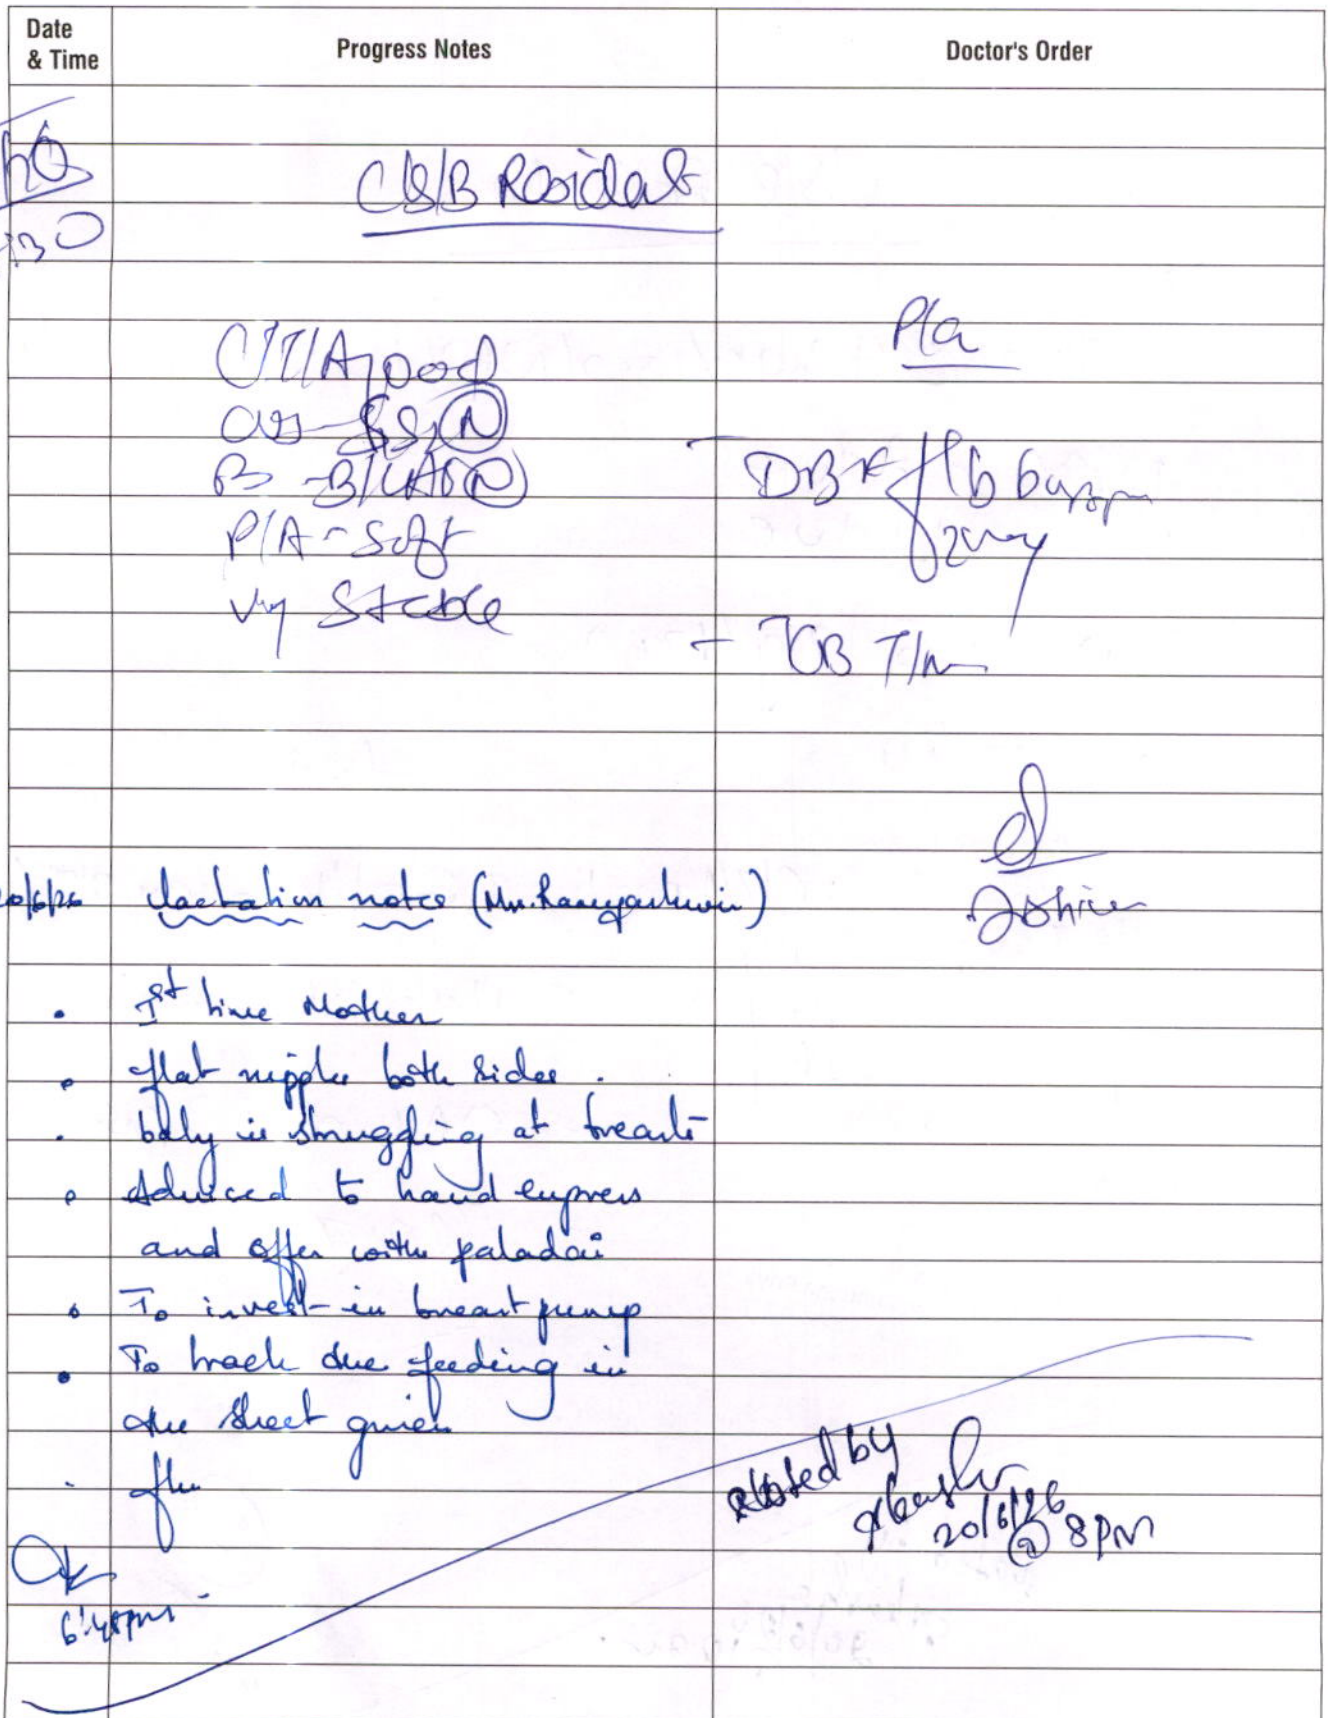 Date
& Time
Progress Notes
Doctor's Order
C/S/B Resident
C/T/A good
CVS - S1S2 (N)
RS - B/L AE (N)
P/A - Soft
Stable
Pla
- DBF f/b burping
- TCB T/m
20/6/26 lactation notes (Mrs.
• Ist time Mother
• flat nipples both sides.
• baby is struggling at breasts
• Adviced to hand express
and offer with paladai
• To invest in breast pump
• To track the feeding in
the sheet given
• f/u
6:48pm.
Noted by
20/6/26
@ 8PM